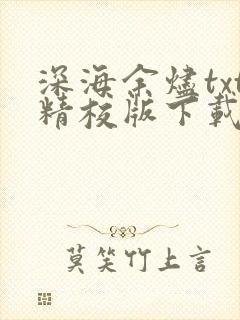 深海余烬txt
精校版下載
莫笑竹上言